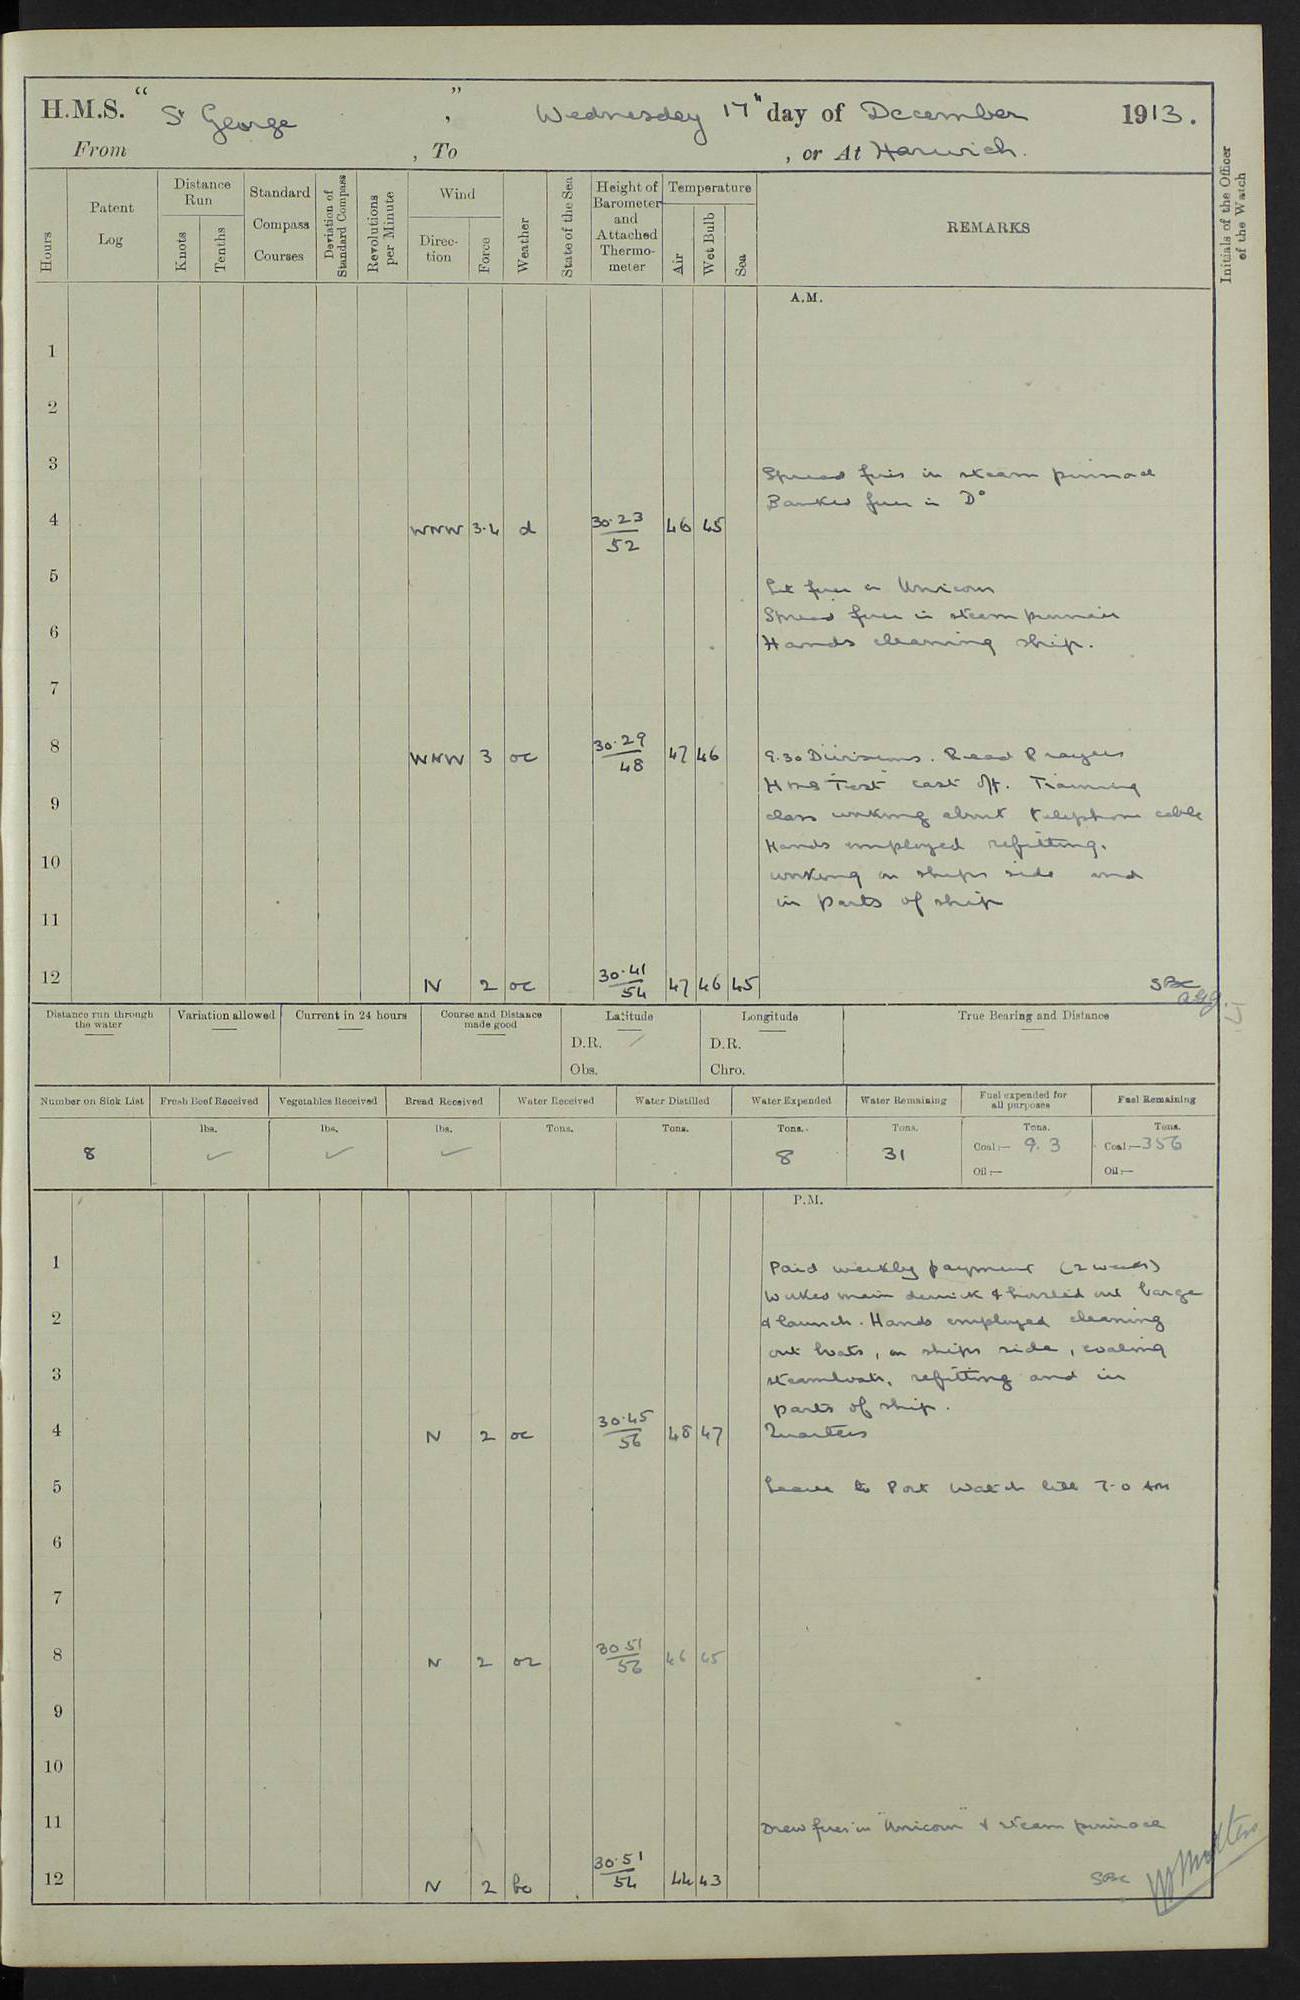 H.M.S. “ St George ”, Wednesday 17th day of December 1913.
From , To , or At Harwich.
Hours
Patent Log
Distance Run
Knots
Tenths
Standard Compass Courses
Deviation of Standard Compass
Revolutions per Minute
Wind
Direction
Force
Weather
State of the Sea
Height of Barometer and Attached Thermometer
Temperature
Air
Wet Bulb
Sea
REMARKS
Initials of the Officer of the Watch
A.M.
1
2
3
Spread fires in steam pinnace
Banked fires in Do
4 WNW 3.4 d 30.23/52 46 45
5
Lit fires in Unicorn
Spread fires in steam pinnace
6
Hands cleaning ship.
7
8 WNW 3 oc 30.29/48 47 46 9.30 Divisions. Read Prayers
HMS Test cast off. Training
9
class working about telephone cable
Hands employed refitting,
10
working on ships side and
in parts of ship
11
12 N 2 oc 30.41/54 47 46 45 SBC
Distance run through the water
Variation allowed
Current in 24 hours
Course and Distance made good
Latitude
D.R.
Obs.
Longitude
D.R.
Chro.
True Bearing and Distance
Number on Sick List
Fresh Beef Received
Vegetables Received
Bread Received
Water Received
Water Distilled
Water Expended
Water Remaining
Fuel expended for all purposes
Fuel Remaining
lbs. lbs. lbs. Tons. Tons. Tons. Tons. Tons. Tons.
8 ✓ ✓ ✓ 8 31 Coal:— 9.3 Coal:— 356
Oil:— Oil:—
P.M.
1 Paid weekly payment (2 weeks)
Worked main derrick & hoisted out barge
2 & launch. Hands employed cleaning
out boats, on ships side, coaling
3 steamboats, refitting and in
parts of ship.
4 N 2 oc 30.45/56 48 47 Quarters
5 Leave to Port Watch till 7.0 AM
6
7
8 N 2 oc 30.51/56 46 45
9
10
11 Drew fires in "Unicorn" & steam pinnace
12 N 2 bc 30.51/54 44 43 SBC